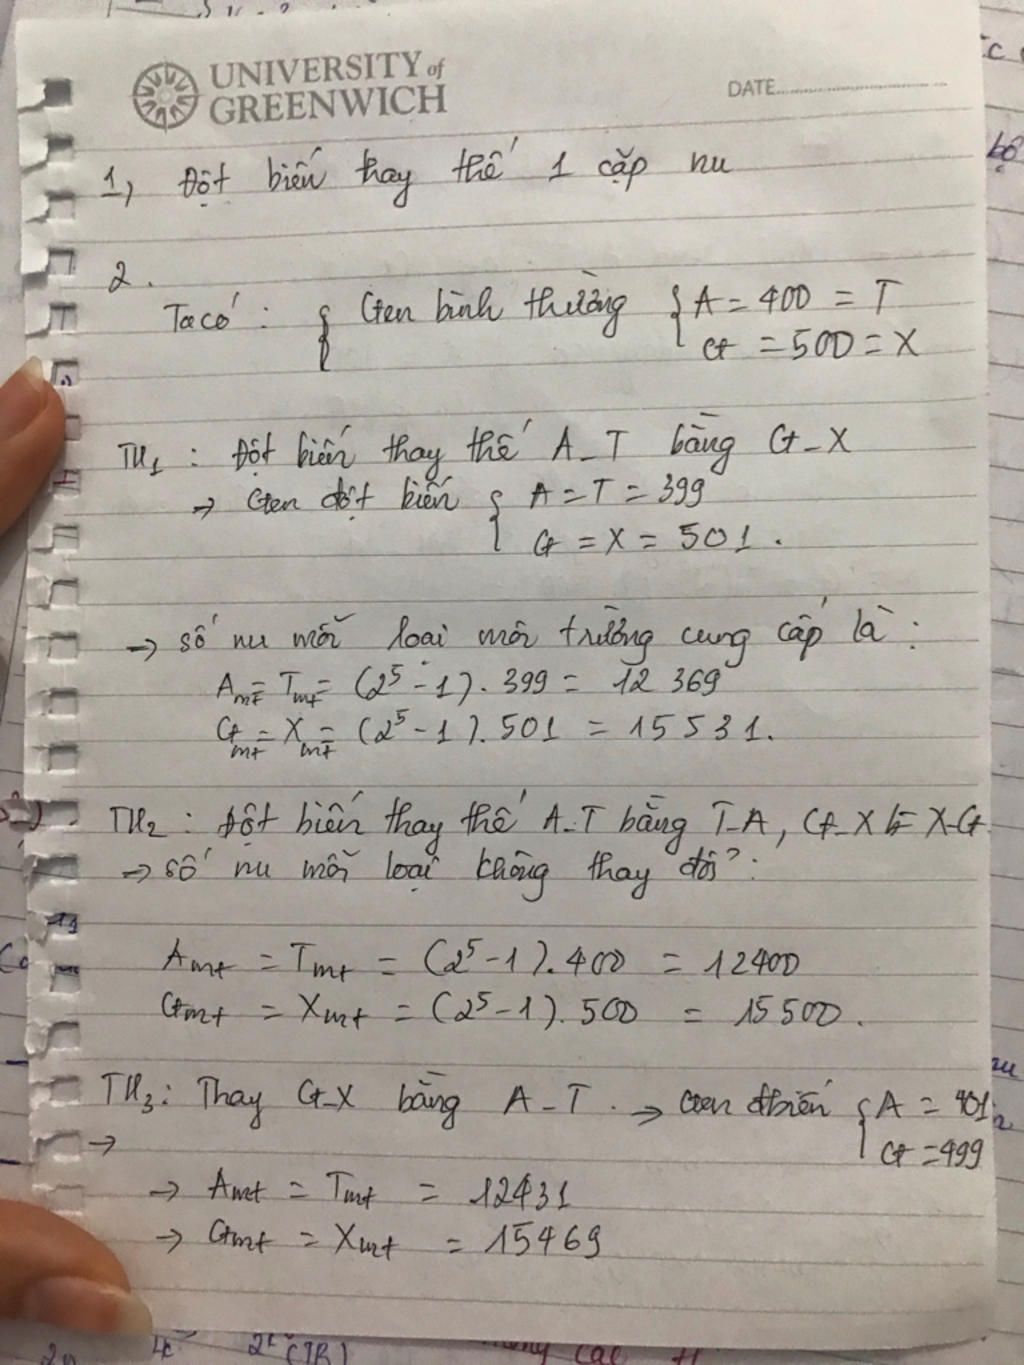 UNIVERSITY of
GREENWICH
DATE
1, Đột biến thay thế 1 cặp nu
2.
Ta có : { Gen bình thường { A = 400 = T
G = 500 = X
TH1 : Đột biến thay thế A_T bằng G_X
→ Gen đột biến { A = T = 399
G = X = 501.
→ số nu mỗi loại môi trường cung cấp là :
Amt = Tmt = (2⁵ - 1). 399 = 12 369
Gmt = Xmt = (2⁵ - 1). 501 = 15 531.
TH2 : Đột biến thay thế A_T bằng T_A, G_X = X_G
→ số nu mỗi loại không thay đổi :
Amt = Tmt = (2⁵ - 1). 400 = 12400
Gmt = Xmt = (2⁵ - 1). 500 = 15 500.
TH3 : Thay G_X bằng A_T. → Gen đbiến { A = 401
→ G = 499
→ Amt = Tmt = 12431
→ Gmt = Xmt = 15469